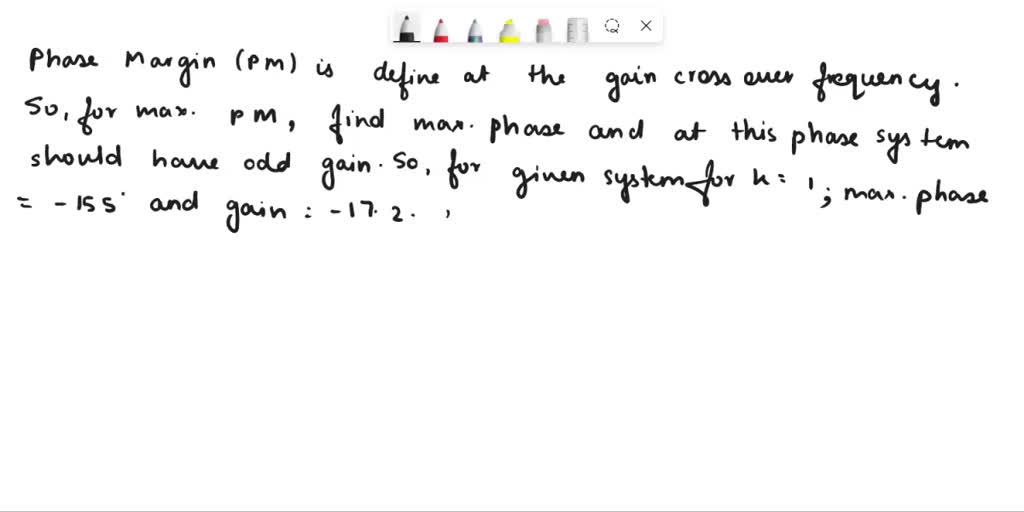 Phase Margin (PM) is define at the gain cross over frequency.
So, for max. PM, find max. phase and at this phase system
should have odd gain. So, for given system for k = 1; max. phase
= -155° and gain = -17.2.,